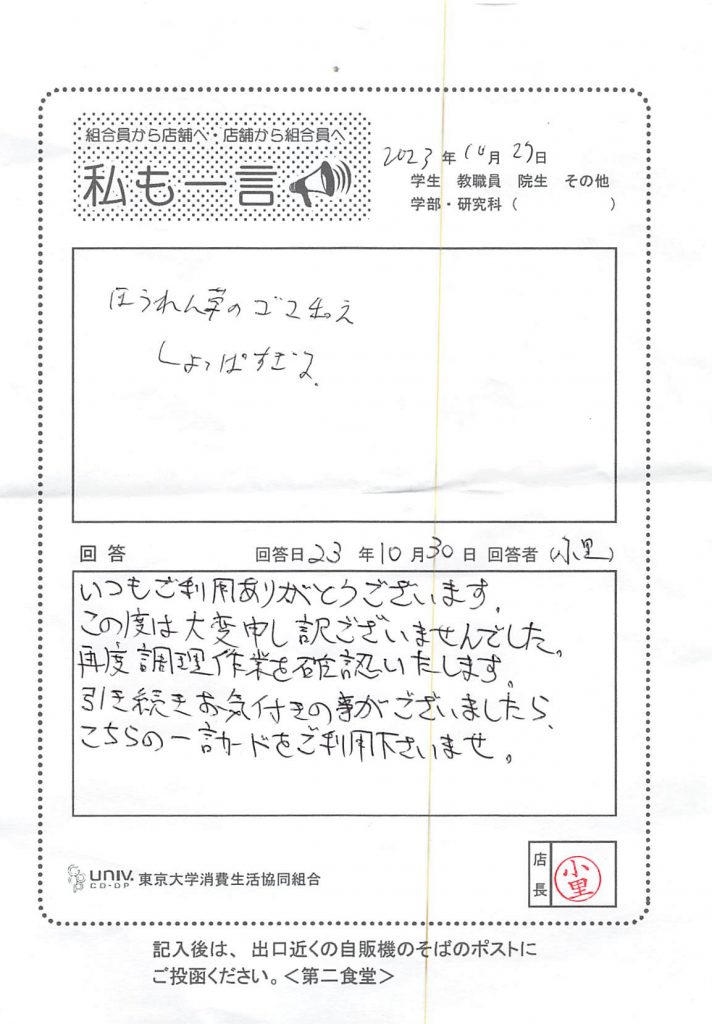 組合員から店舗へ・店舗から組合員へ
私も一言
2023年10月27日
学生 教職員 院生 その他
学部・研究科（　　　）
ほうれん草のゴマ和え
しょっぱすぎる.
回答 回答日23年10月30日 回答者（小里）
いつもご利用ありがとうございます。
この度は大変申し訳ございませんでした。
再度調理作業を確認いたします。
引き続きお気付きの事がございましたら、
こちらの一言カードをご利用下さいませ。
店長
小里
CO-OP UNIV. CO-OP 東京大学消費生活協同組合
記入後は、出口近くの自販機のそばのポストに
ご投函ください。＜第二食堂＞